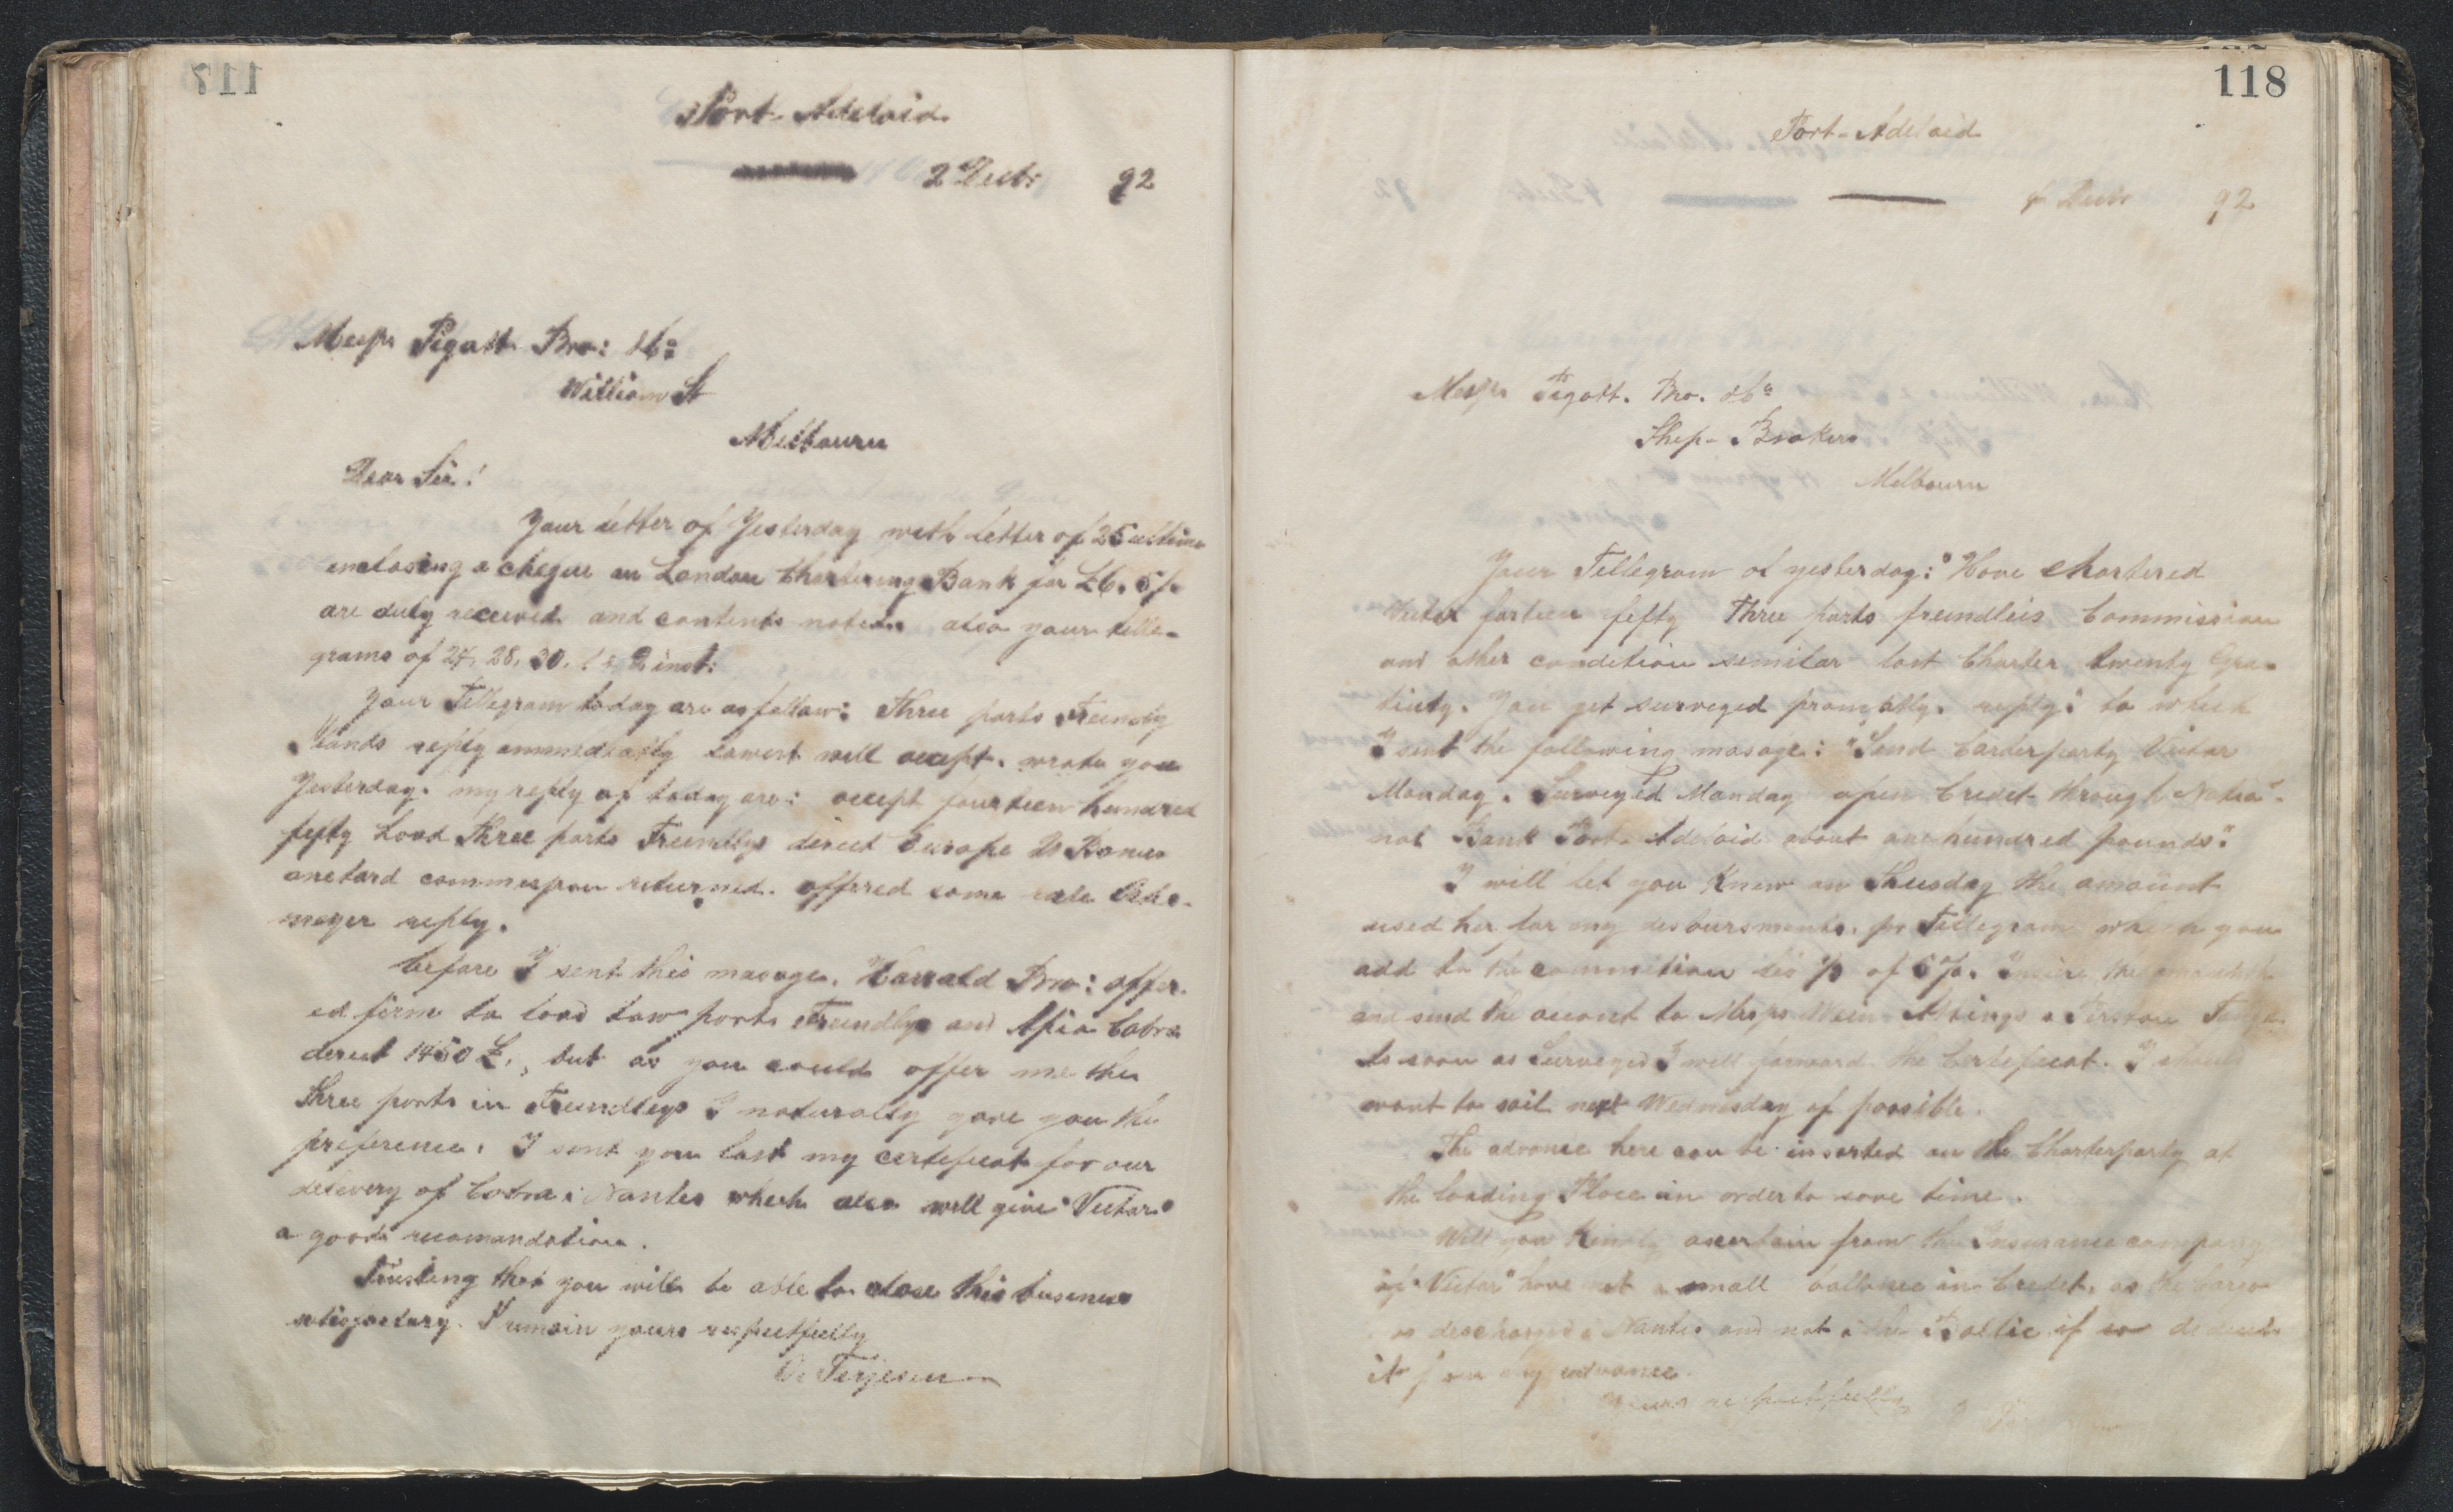 117
Port-Adelaid
2 Decbr 92
Messrs Pigott Bro: & Co:
William St
Melbourn
Dear Sir!
Your letter of Yesterday with letter of 25 ultimo
enclosing a cheque on London Chartering Bank for £6. 5/-
are duly received and contents noted also your telle-
grams of 24, 28, 30, 1 & 2 inst:
Your Tellegram today are as follow: Three ports Freendly
Ilands reply ammediatly lowest will accept. wrote you
Yesterday. my reply of today are: accept fourteen hundred
fefty Load Three ports Freendlys derect Europe
onetard commespon returned. offered same rate
meyer reply.
before I sent this masage, Harrald Bro: offer-
ed firm to load tow ports Freendlys and Apia Cobra
derect 1450 £., but as you could offer me the
three ports in Freendleys I naturally gave you the
preference. I sent you last my certeficat for our
delevery of Cobra i Nantes which also will give "Victor"
a good recomandation.
Trusting that you will be able to close this business
satisfactary. I remain yours respectfully
O. Terjesen
118
Port-Adelaid
4 Decbr 92
Messrs Pigott. Bro. & Co
Shep-Brokers
Melbourn
Your Tellegram of yesterday: "Have chartered
Victor forteen fefty Three ports freendleis Commission
and other condetion semilar last Charter twenty Gra-
tiuty. You get surveyed promptly. reply." to which
I sent the following masage: "Send Carterparty Victor
Monday. Surveyed Monday open Credet through Natio-
nal Bank Port-Adelaid about one hundred pounds."
I will let you Know on Thusday the amount
used her for my desbursments. pr Tellegram which you
add to the commetion les 1/3 of 5%. Insure the amount
and send the account to Messrs &
As soon as Surveyed I will forward the Certeficat. I should
want to sail next Wednesday if possible.
The advance here can be inserted on the Charterparty at
the loading Place in order to save time.
Will you Kindly ascertain from the Insurance company
if "Victor" have not a small ballance in Credet, as the Cargo
is descharged i Nantes and not i the Baltic if so deduct
it from my advance.
Yours respectfully